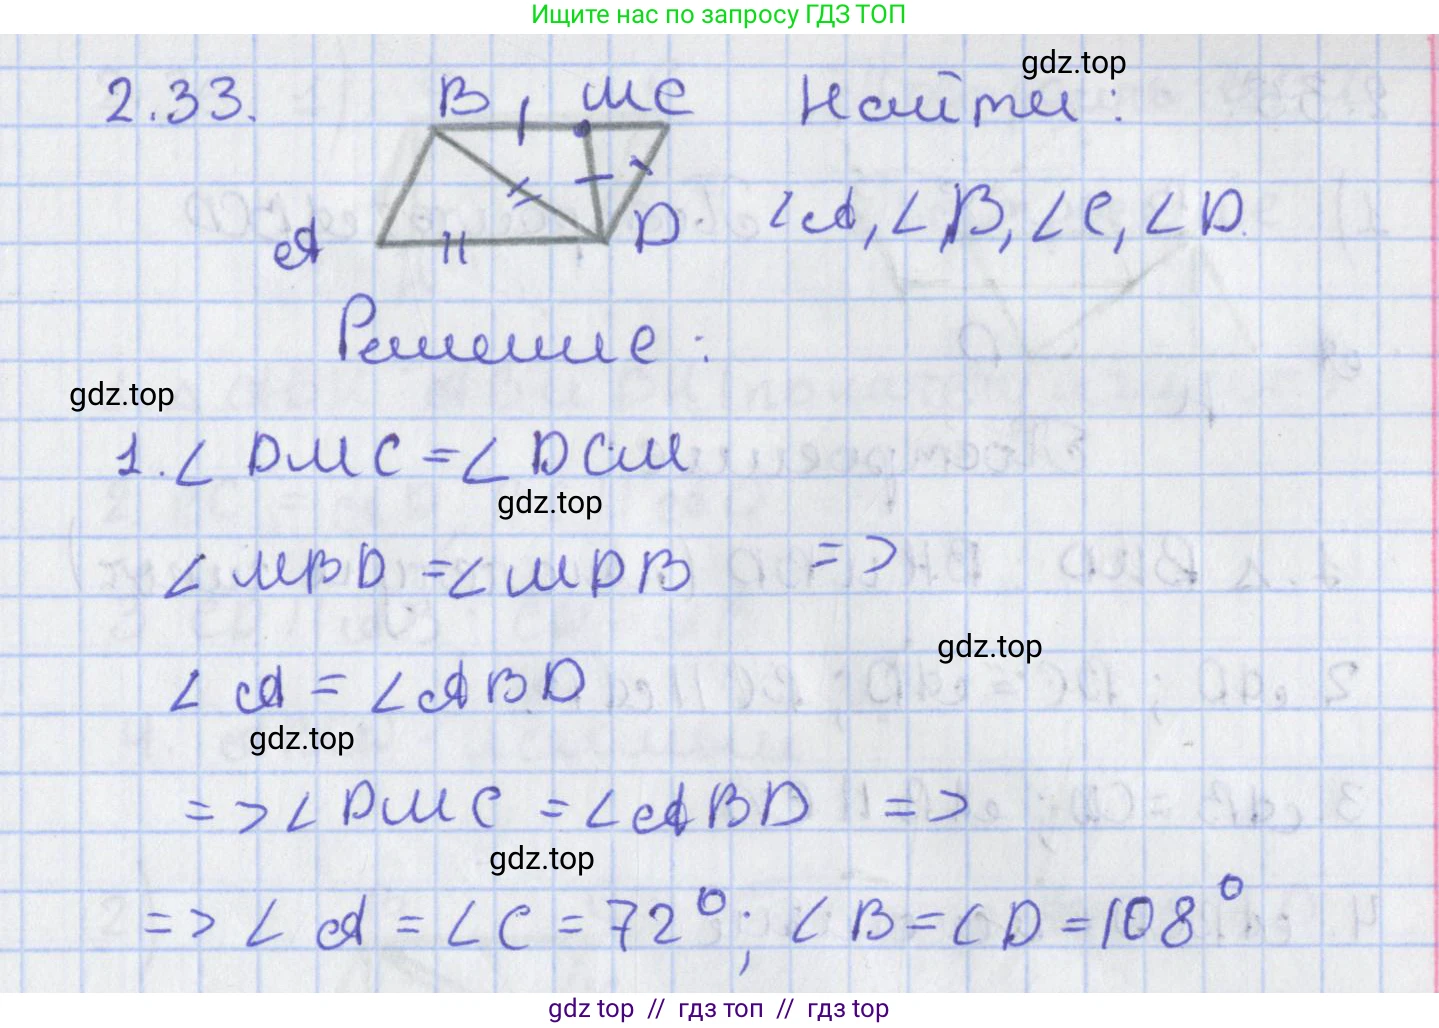 Ищите нас по запросу ГДЗ ТОП
gdz.top
2.33. B M C Найти:
A D ∠A, ∠B, ∠C, ∠D.
Решение:
gdz.top
1. ∠ DMC = ∠ DCM
gdz.top
∠ MBD = ∠ MDB =>
gdz.top
∠ A = ∠ ABD
gdz.top
=> ∠ DMC = ∠ ABD =>
gdz.top
=> ∠ A = ∠ C = 72°; ∠ B = ∠ D = 108°
gdz top // гдз топ // гдз top